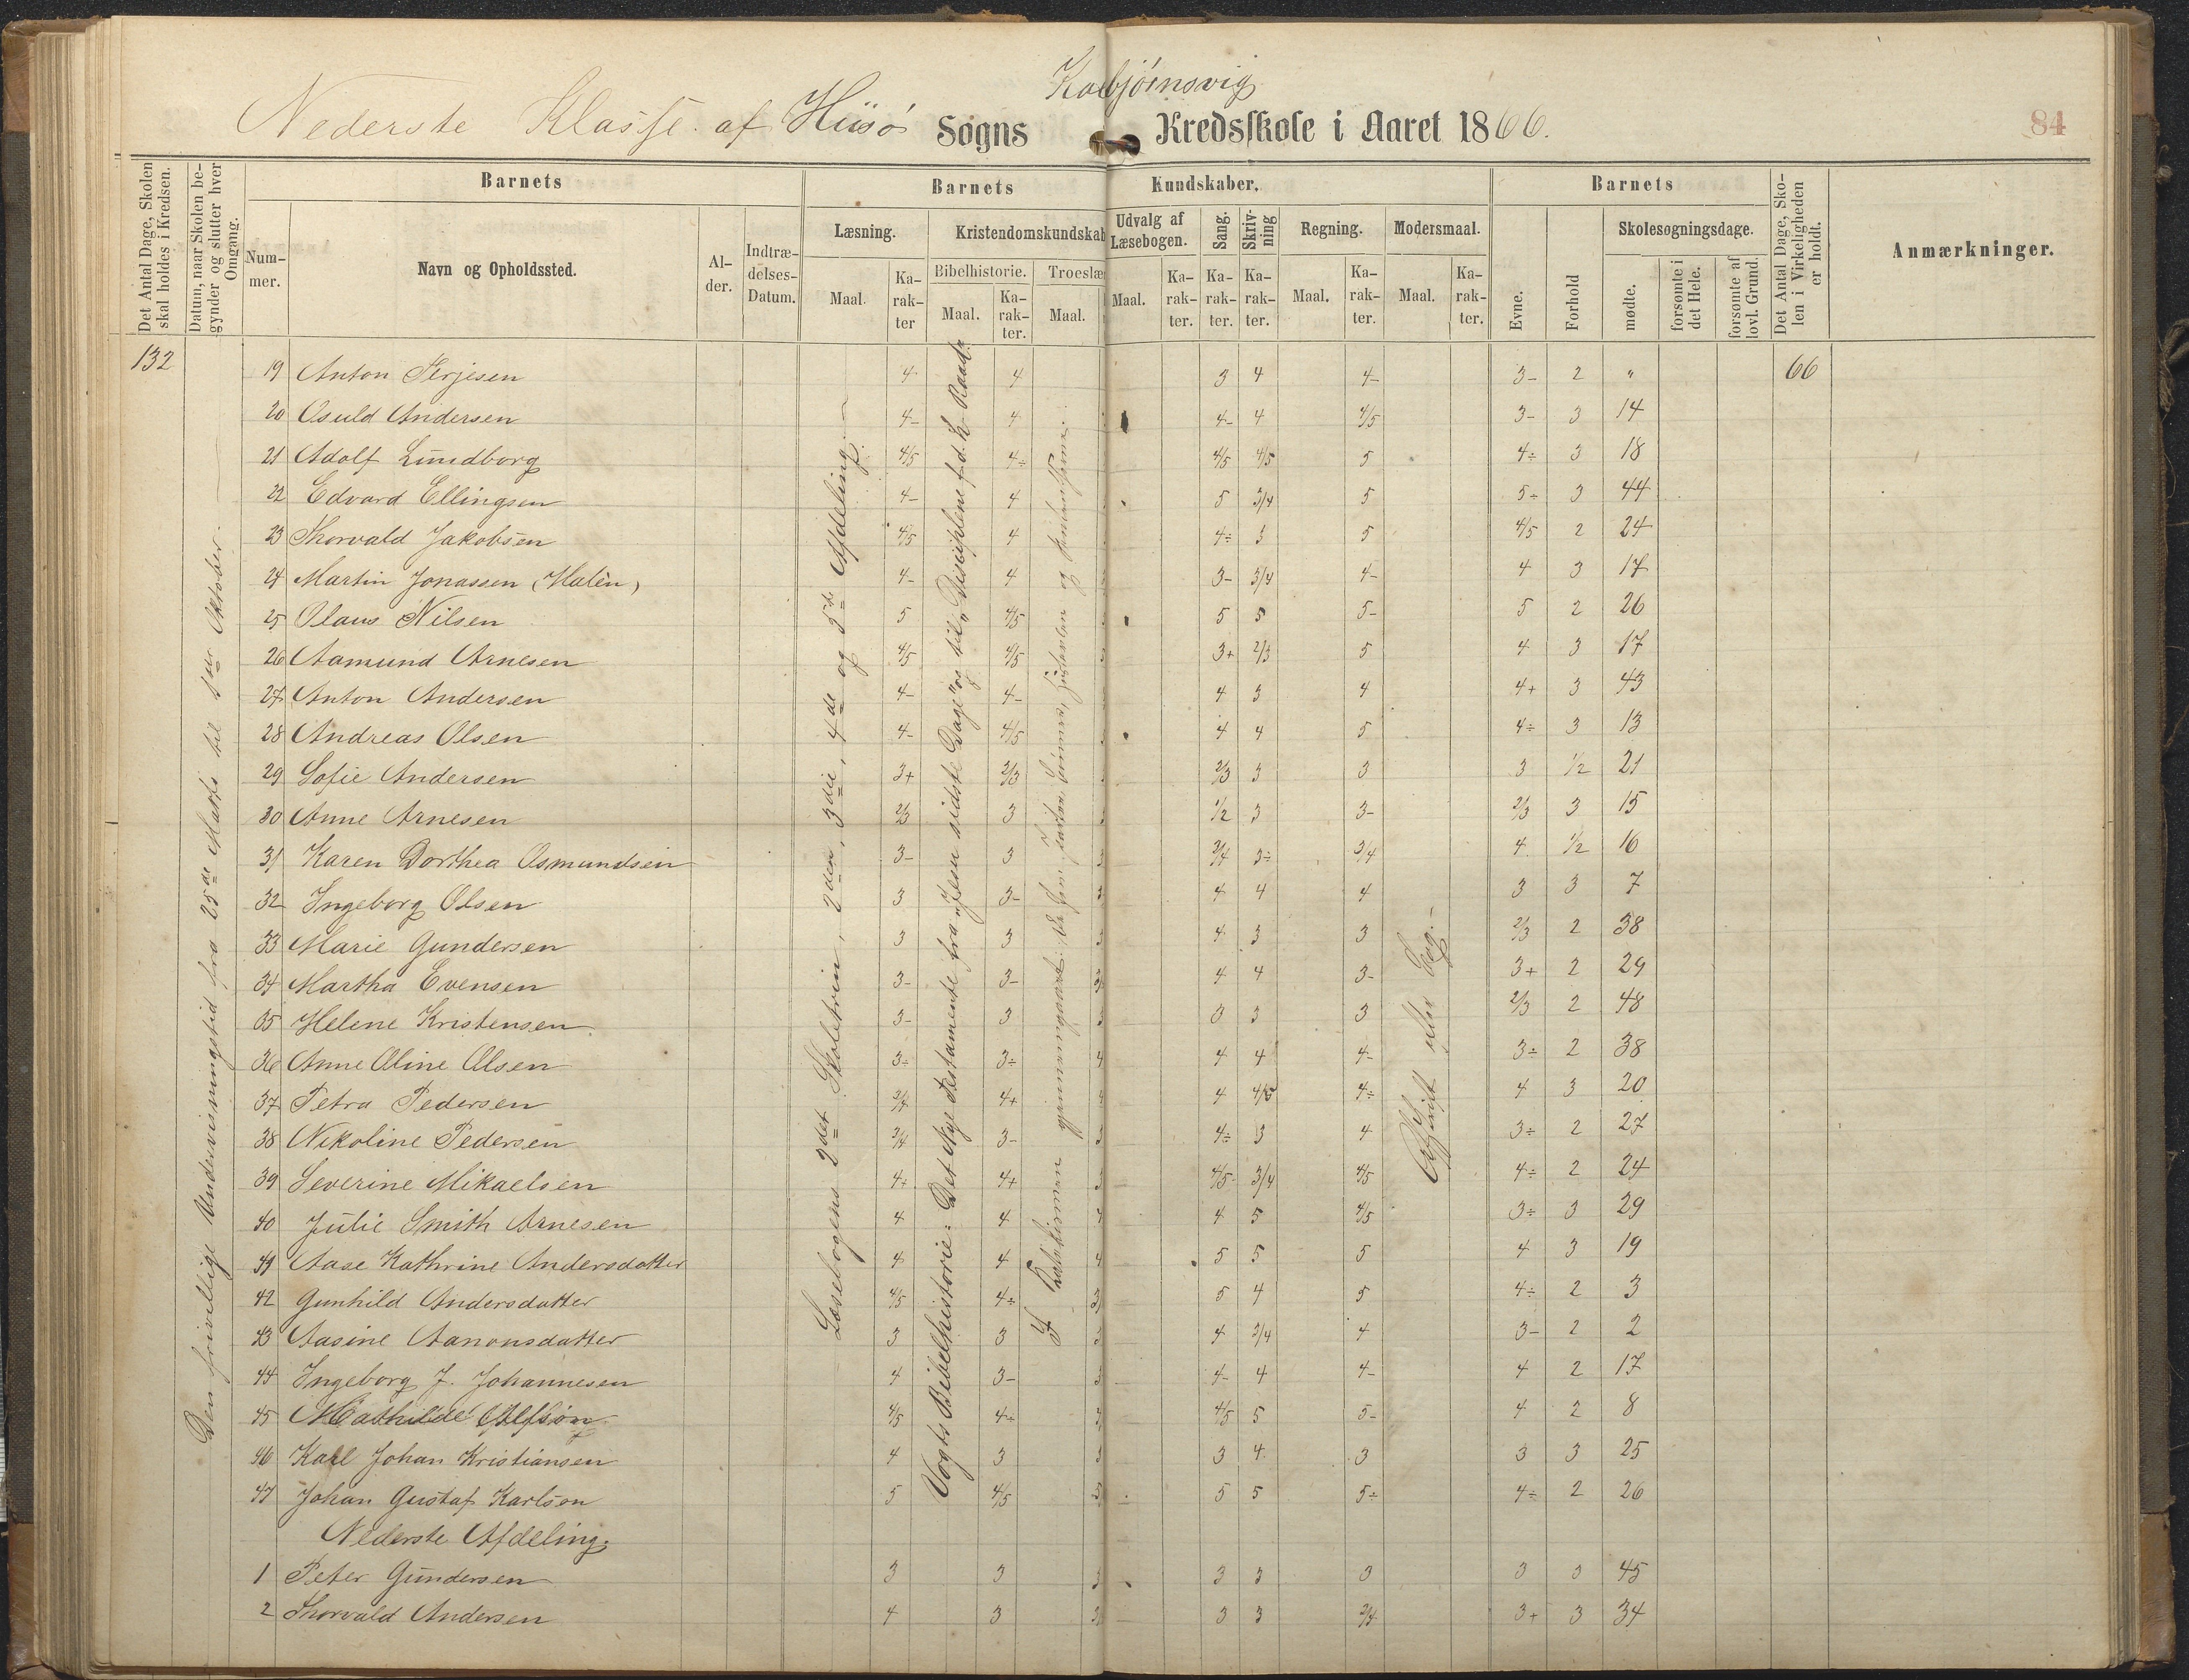 Kolbjörnsvig
Nederste Klasse af Hisö Sogns Kredsskole i Aaret 1866.
84
Det Antal Dage, Skolen skal holdes i Kredsen.
Datum, naar Skolen begynder og slutter hver Omgang.
Barnets
Nummer.
Navn og Opholdssted.
Alder.
Indtrædelses-Datum.
Barnets
Kundskaber.
Læsning.
Maal.
Karakter
Kristendomskundskab
Bibelhistorie.
Maal.
Karakter.
Troeslæ
Maal.
Udvalg af Læsebogen.
Maal.
Karakter.
Sang.
Karakter.
Skrivning
Karakter.
Regning.
Maal.
Karakter.
Modersmaal.
Maal.
Karakter.
Barnets
Evne.
Forhold
Skolesøgningsdage.
mødte.
forsømte i det Hele.
forsømte af lovl. Grund.
Det Antal Dage, Skolen i Virkeligheden er holdt.
Anmærkninger.
132
Den frivillige Undervisningstid fra 25de Marts til 1ste Oktober.
Læsebogens 2det Skoletrin, 2den, 3die, 4de og 5te Afdeling.
Vogts Bibelhistorie: Det Nye Testamente fra "Jesu sidste Dage" og til "Disciplene f. d. h. Raad".
Afskrift efter Bog.
19 Anton Terjesen 4 4 3 4 4- 3- 2 " 66
20 Osuld Andersen 4- 4 4- 4 4/5 3- 3 14
21 Adolf Lundborg 4/5 4÷ 4/5 4/5 5 4÷ 3 18
22 Edvard Ellingsen 4- 4 5 3/4 5 5÷ 3 44
23 Thorvald Jakobsen 4/5 4 4÷ 3 5 4/5 2 24
24 Martin Jonassen (Malèn) 4- 4 3- 3/4 4- 4 3 17
25 Olaus Nilsen 5 4/5 5 5 5- 5 2 26
26 Aamund Arnesen 4/5 4/5 3+ 2/3 5 4 3 17
27 Anton Andersen 4- 4- 4 3 4 4+ 3 43
28 Andreas Olsen 4- 4/5 4 4 5 4÷ 3 13
29 Sofie Andersen 3+ 2/3 2/3 3 3 3 1/2 21
30 Anne Arnesen 2/3 3 1/2 3 3- 2/3 3 15
31 Karen Dorthea Osmundsen 3- 3 3/4 3÷ 3/4 4 1/2 16
32 Ingeborg Olsen 3 3- 4 4 4 3 3 7
33 Marie Gundersen 3 3 4 3 3 2/3 2 38
34 Martha Evensen 3- 3- 4 4 3- 3+ 2 29
35 Helene Kristensen 3- 3 3 3 3 2/3 2 48
36 Anne Oline Olsen 3÷ 3÷ 4 4 4- 3÷ 2 38
37 Petra Pedersen 3/4 4+ 4 4/5 4÷ 4 3 20
38 Nikoline Pedersen 3/4 3- 4÷ 3 4 3÷ 2 27
39 Severine Mikaelsen 4+ 4+ 4/5 3/4 4/5 4÷ 2 24
40 Julie Smith Arnesen 4 4 4 5 4/5 3÷ 3 29
41 Aase Kathrine Andersdatter 4 4 5 5 5 4 3 19
42 Gunhild Andersdatter 4/5 4÷ 5 4 5 4÷ 2 3
43 Aasine Aanonsdatter 3 3 4 3/4 4 3- 2 2
44 Ingeborg J. Johannesen 4 3- 4- 4 4- 4 2 17
45 Mathilde 4/5 4÷ 4/5 5 5- 4 2 8
46 Karl Johan Kristiansen 4 3 3 4 3 3 3 25
47 Johan Gustaf Karlson 5 4/5 5 5 5÷ 4÷ 2 26
Nederste Afdeling.
1 Peter Gundersen 3 3 3 3 3 3 3 45
2 Thorvald Andersen 4 3 3 3 3/4 3+ 3 34